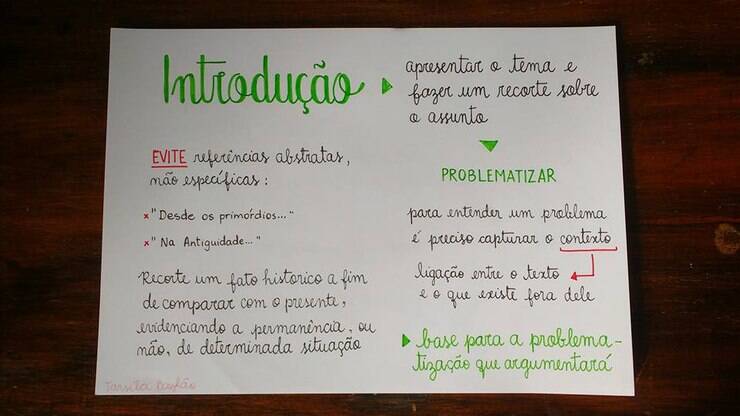 Introdução
apresentar o tema e
fazer um recorte sobre
o assunto
PROBLEMATIZAR
para entender um problema
é preciso capturar o contexto
ligação entre o texto
e o que existe fora dele
base para a problema-
tização que argumentará
EVITE referências abstratas,
não específicas:
x "Desde os primórdios..."
x "Na Antiguidade..."
Recorte um fato historico a fim
de comparar com o presente,
evidenciando a permanência, ou
não, de determinada situação